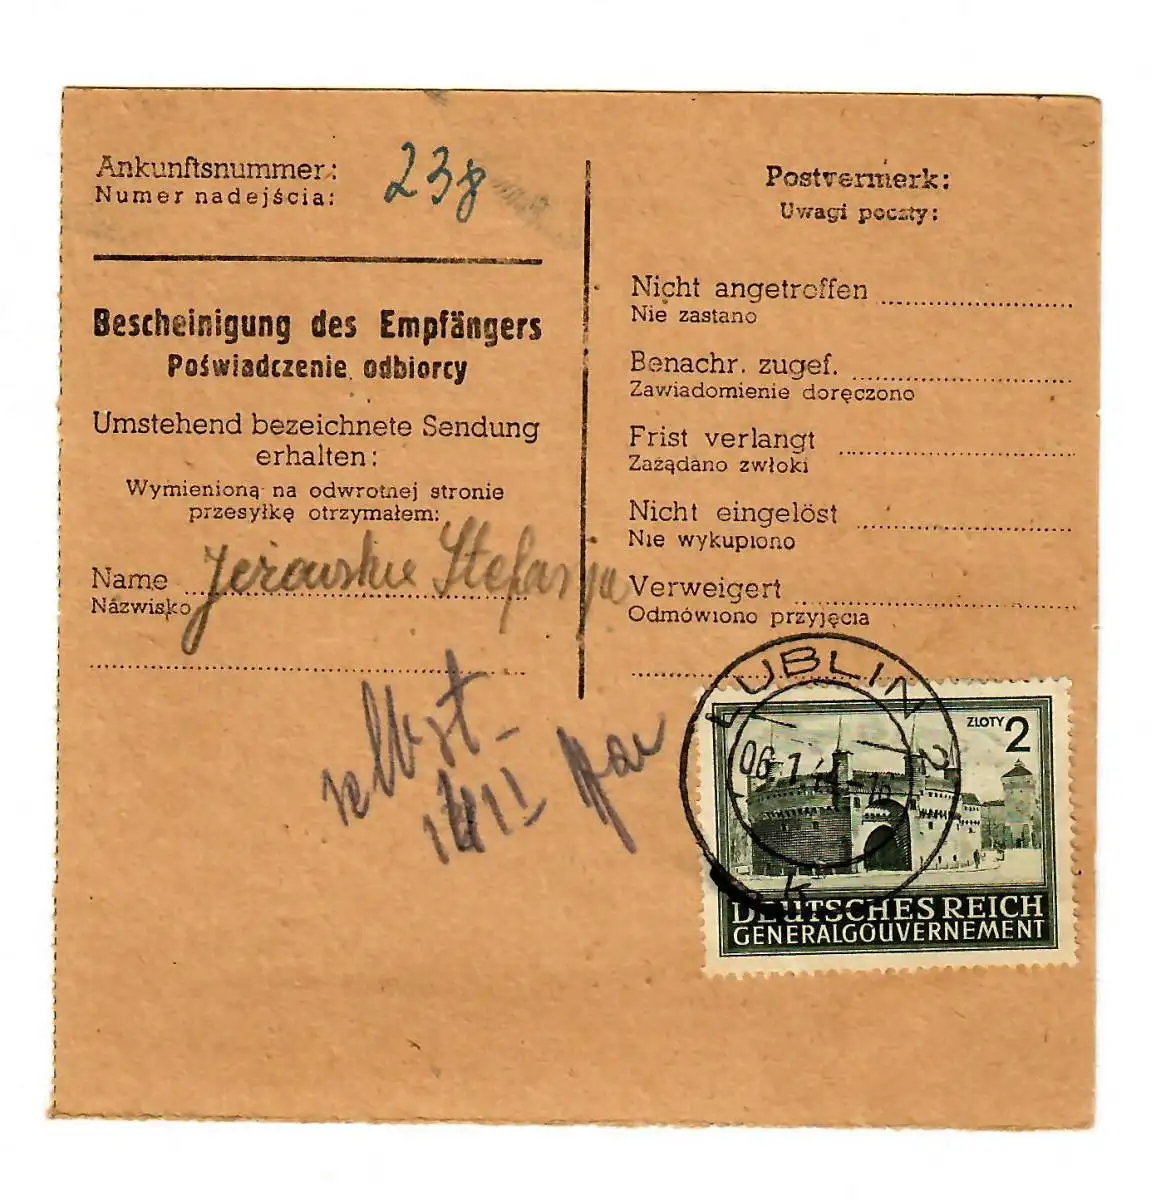 Ankunftsnummer: 238
Numer nadejścia:
Bescheinigung des Empfängers
Poświadczenie odbiorcy
Umstehend bezeichnete Sendung
erhalten:
Wymienioną na odwrotnej stronie
przesyłkę otrzymałem:
Name
Nazwisko
selbst
Postvermerk:
Uwagi poczty:
Nicht angetroffen
Nie zastano
Benachr. zugef.
Zawiadomienie doręczono
Frist verlangt
Zażądano zwłoki
Nicht eingelöst
Nie wykupiono
Verweigert
Odmówiono przyjęcia
LUBLIN 2
k
ZŁOTY 2
DEUTSCHES REICH
GENERALGOUVERNEMENT